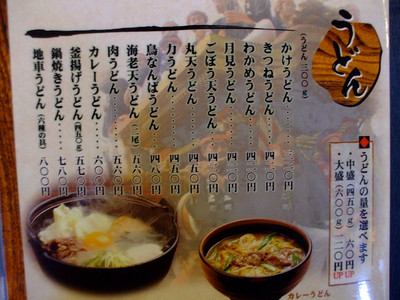 うどん
(うどん 三〇〇g)
かけうどん
きつねうどん
わかめうどん
月見うどん
ごぼう天うどん
丸天うどん 四五〇円
力うどん 四五〇円
鳥なんばうどん 四八〇円
海老天うどん (二尾) 五六〇円
肉うどん 五六〇円
カレーうどん 六〇〇円
釜揚げうどん (四五〇g) 五七〇円
鍋焼きうどん 七八〇円
地車うどん (六種の具) 八〇〇円
うどんの量を選べます
・中盛 (四五〇g) 六〇円UP
・大盛 (六〇〇g) 一二〇円UP
カレーうどん